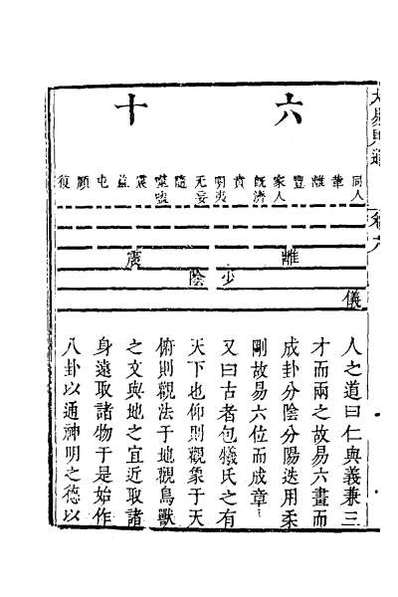 六十
同人 革 離 豐 家人 旣濟 賁 明夷 无妄 隨 噬嗑 震 益 屯 頤 復
離 震
少陰
儀
人之道曰仁與義兼三
才而兩之故易六畫而
成卦分陰分陽迭用柔
剛故易六位而成章
又曰古者包犧氏之有
天下也仰則觀象于天
俯則觀法于地觀鳥獸
之文與地之宜近取諸
身遠取諸物于是始作
八卦以通神明之德以